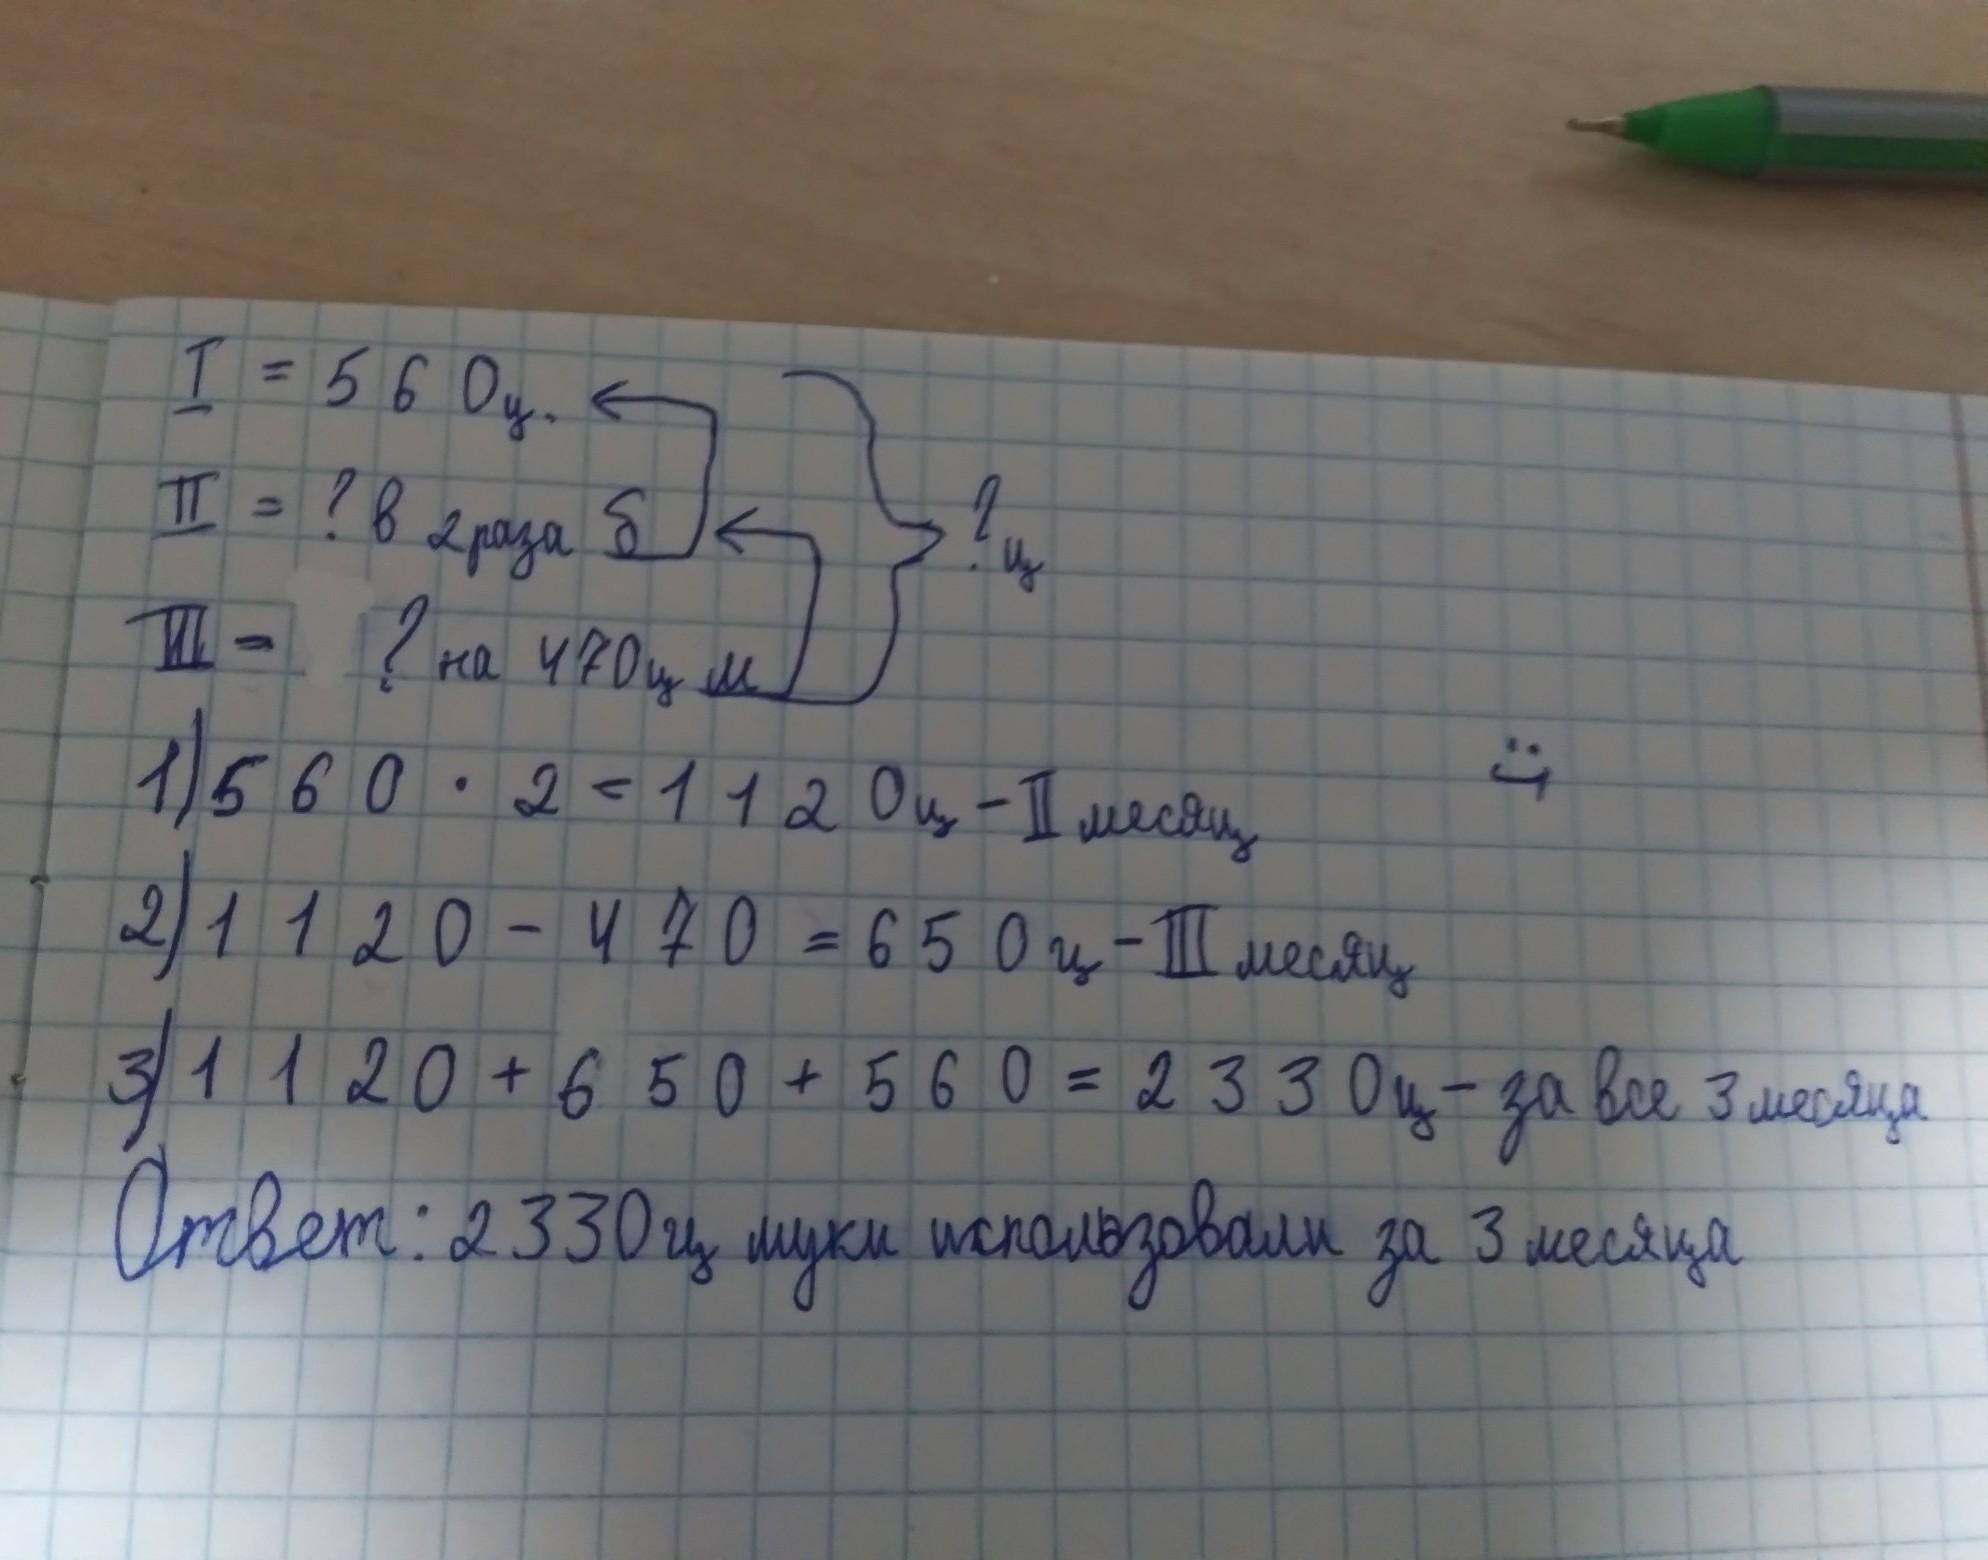 I = 560ц.
II = ? в 2 раза б
?ц
III = ? на 470ц м
1) 560 · 2 = 1120ц - II месяц
2) 1120 - 470 = 650ц - III месяц
3) 1120 + 650 + 560 = 2330ц - за все 3 месяца
Ответ: 2330ц муки использовали за 3 месяца